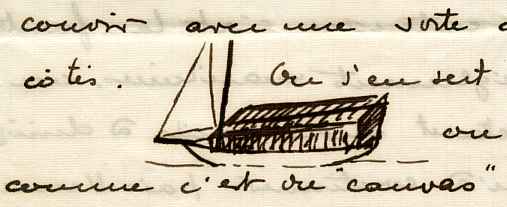 couvrir avec une sorte
côtés. On s'en sert
ou
comme c'est du "canvas"